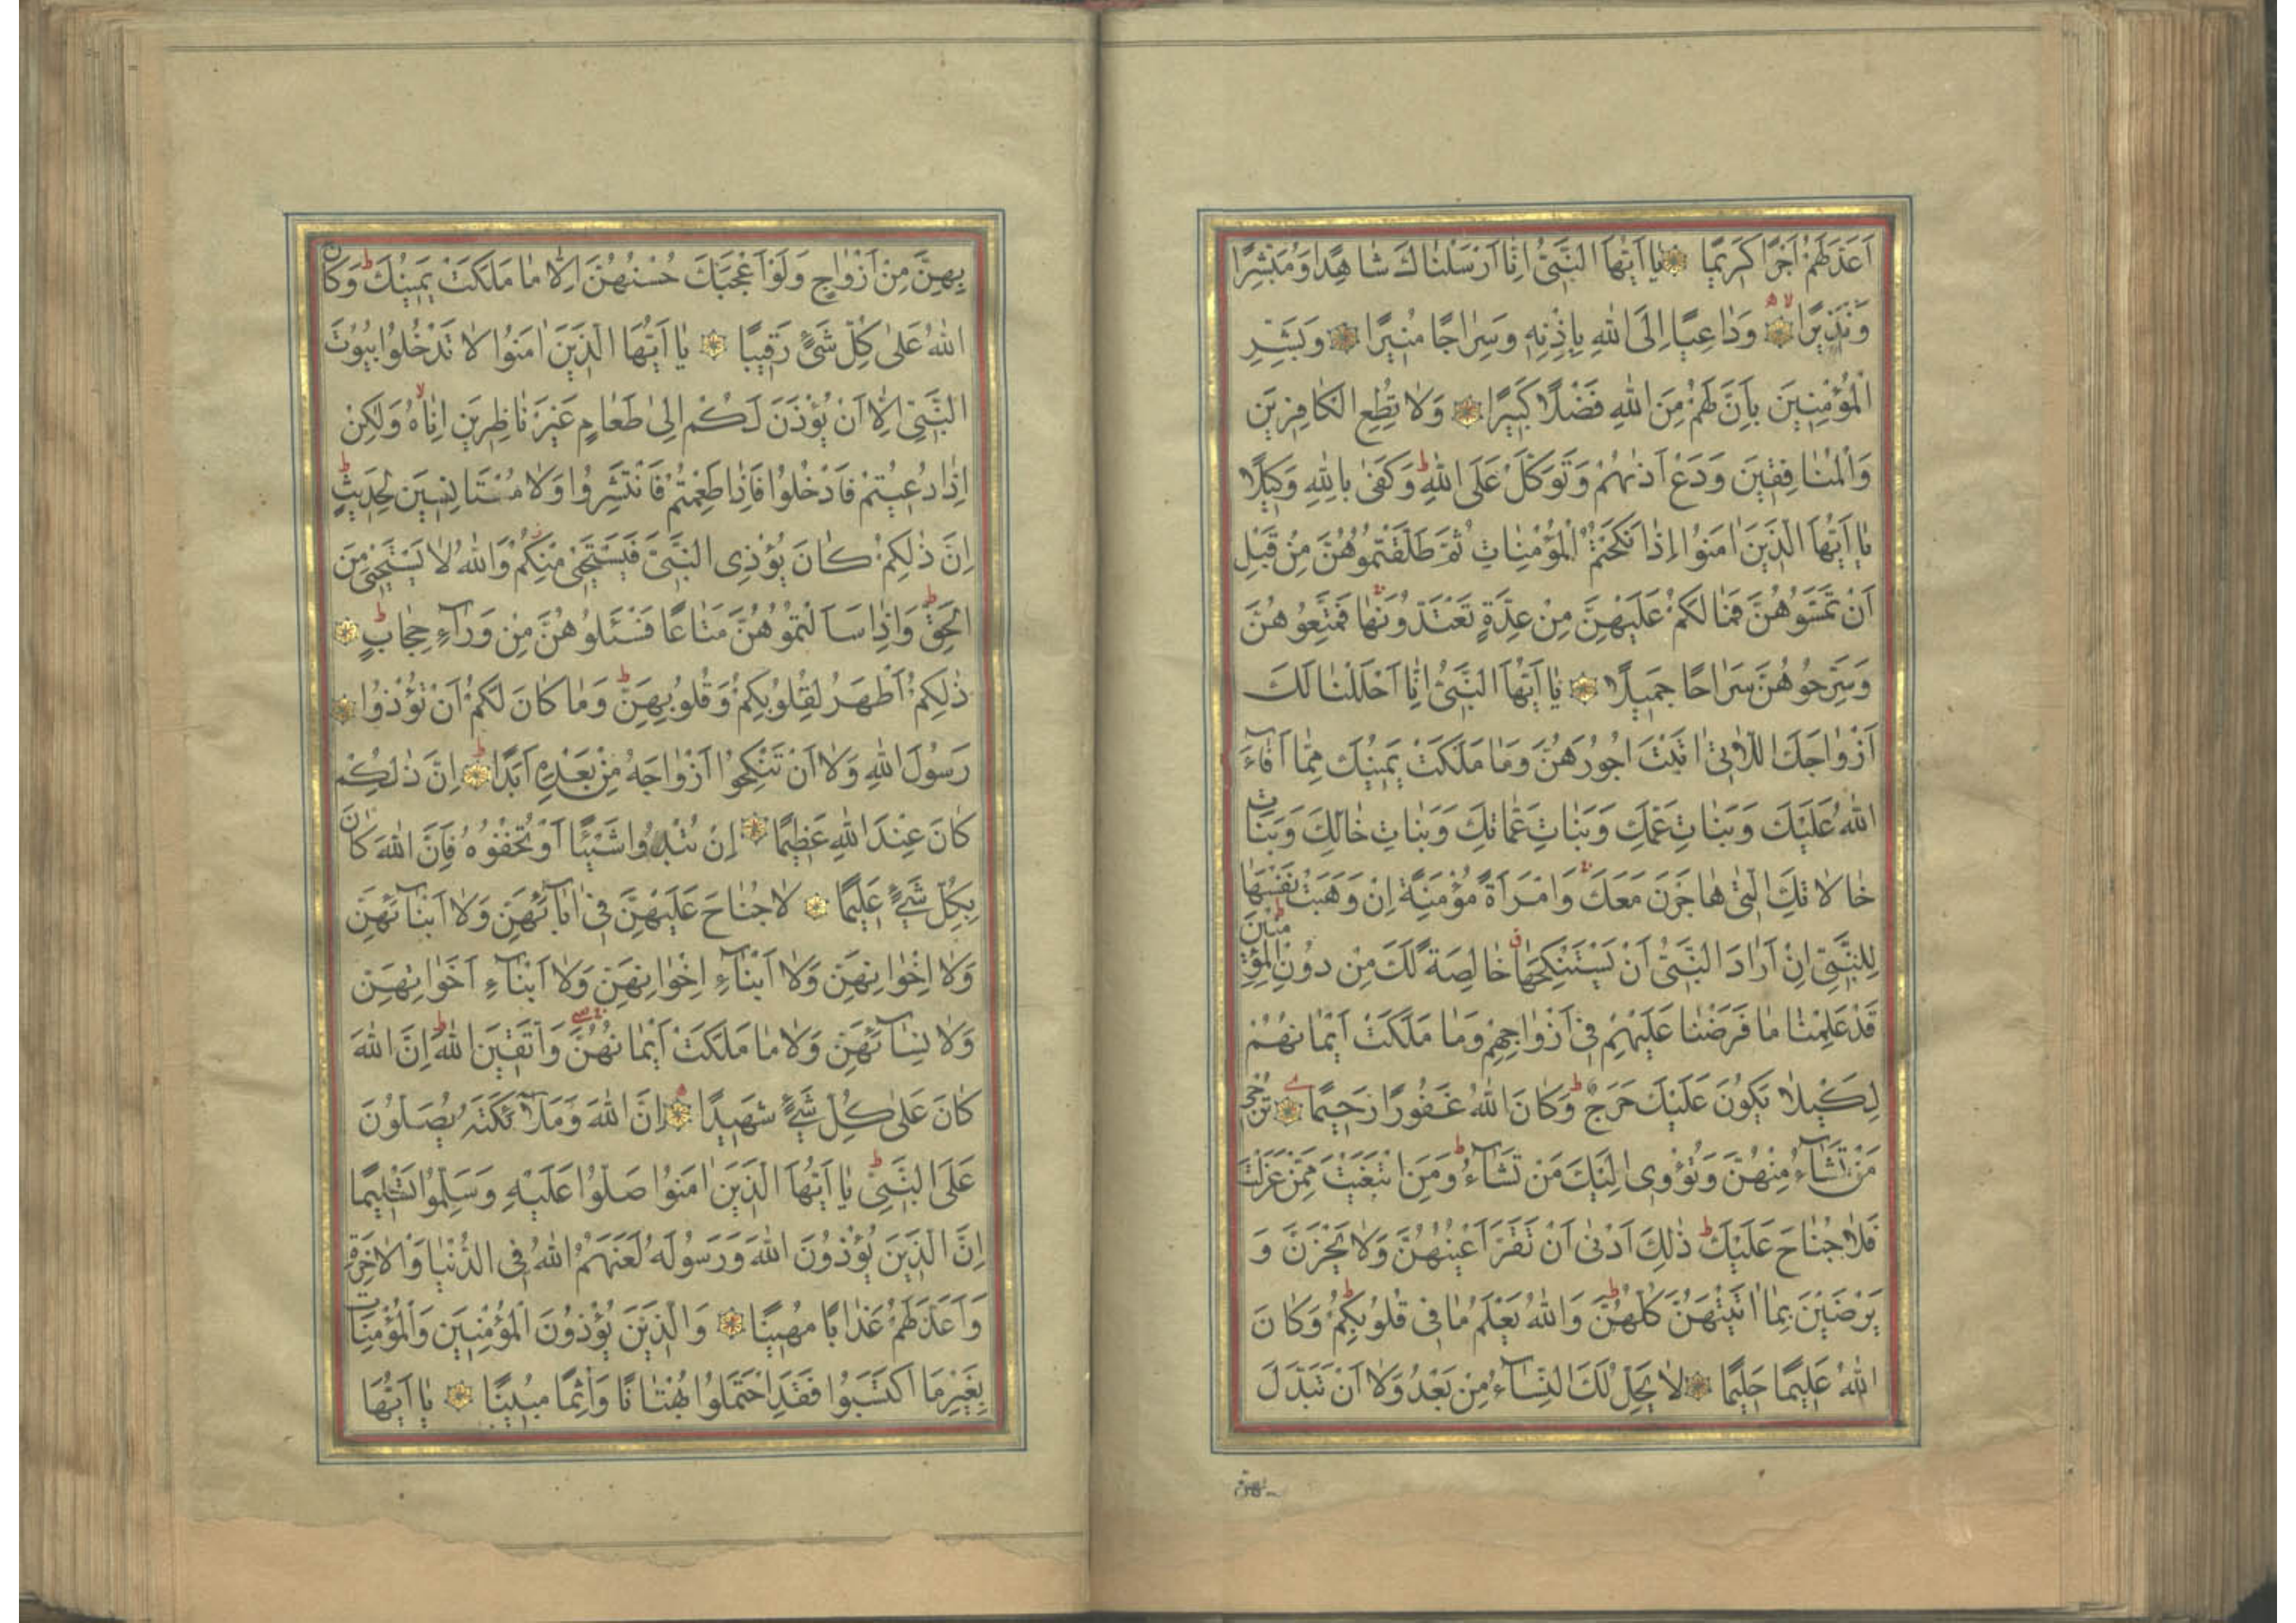 اَعَدَّ لَهُمْ اَجْرًا كَرِيمًا يَا اَيُّهَا النَّبِىُّ اِنَّا اَرْسَلْنَاكَ شَاهِدًا وَمُبَشِّرًا
وَنَذِيرًا وَدَاعِيًا اِلَى اللهِ بِاِذْنِهِ وَسِرَاجًا مُنِيرًا وَبَشِّرِ
الْمُؤْمِنِينَ بِاَنَّ لَهُمْ مِنَ اللهِ فَضْلًا كَبِيرًا وَلَا تُطِعِ الْكَافِرِينَ
وَالْمُنَافِقِينَ وَدَعْ اَذٰيهُمْ وَتَوَكَّلْ عَلَى اللهِ ط وَكَفٰى بِاللهِ وَكِيلًا
يَا اَيُّهَا الَّذِينَ اٰمَنُوا اِذَا نَكَحْتُمُ الْمُؤْمِنَاتِ ثُمَّ طَلَّقْتُمُوهُنَّ مِنْ قَبْلِ
اَنْ تَمَسُّوهُنَّ فَمَا لَكُمْ عَلَيْهِنَّ مِنْ عِدَّةٍ تَعْتَدُّونَهَا فَمَتِّعُوهُنَّ
وَسَرِّحُوهُنَّ سَرَاحًا جَمِيلًا يَا اَيُّهَا النَّبِىُّ اِنَّا اَحْلَلْنَا لَكَ
اَزْوَاجَكَ اللَّاتِى اٰتَيْتَ اُجُورَهُنَّ وَمَا مَلَكَتْ يَمِينُكَ مِمَّا اَفَآءَ
اللهُ عَلَيْكَ وَبَنَاتِ عَمِّكَ وَبَنَاتِ عَمَّاتِكَ وَبَنَاتِ خَالِكَ وَبَنَاتِ
خَالَاتِكَ الّٰتِى هَاجَرْنَ مَعَكَ وَامْرَاَةً مُؤْمِنَةً اِنْ وَهَبَتْ نَفْسَهَا
لِلنَّبِىِّ اِنْ اَرَادَ النَّبِىُّ اَنْ يَسْتَنْكِحَهَا خَالِصَةً لَكَ مِنْ دُونِ الْمُؤْمِنِينَ ط
قَدْ عَلِمْنَا مَا فَرَضْنَا عَلَيْهِمْ فِى اَزْوَاجِهِمْ وَمَا مَلَكَتْ اَيْمَانُهُمْ
لِكَيْلَا يَكُونَ عَلَيْكَ حَرَجٌ ط وَكَانَ اللهُ غَفُورًا رَحِيمًا تُرْجِى
مَنْ تَشَآءُ مِنْهُنَّ وَتُؤْوِى اِلَيْكَ مَنْ تَشَآءُ ط وَمَنِ ابْتَغَيْتَ مِمَّنْ عَزَلْتَ
فَلَا جُنَاحَ عَلَيْكَ ط ذٰلِكَ اَدْنٰى اَنْ تَقَرَّ اَعْيُنُهُنَّ وَلَا يَحْزَنَّ وَ
يَرْضَيْنَ بِمَا اٰتَيْتَهُنَّ كُلُّهُنَّ ط وَاللهُ يَعْلَمُ مَا فِى قُلُوبِكُمْ ط وَكَانَ
اللهُ عَلِيمًا حَلِيمًا لَا يَحِلُّ لَكَ النِّسَآءُ مِنْ بَعْدُ وَلَا اَنْ تَبَدَّلَ
بهن
بِهِنَّ مِنْ اَزْوَاجٍ وَلَوْ اَعْجَبَكَ حُسْنُهُنَّ اِلَّا مَا مَلَكَتْ يَمِينُكَ ط وَكَانَ
اللهُ عَلٰى كُلِّ شَىْءٍ رَقِيبًا يَا اَيُّهَا الَّذِينَ اٰمَنُوا لَا تَدْخُلُوا بُيُوتَ
النَّبِىِّ اِلَّا اَنْ يُؤْذَنَ لَكُمْ اِلٰى طَعَامٍ غَيْرَ نَاظِرِينَ اِنَاهُ لا وَلٰكِنْ
اِذَا دُعِيتُمْ فَادْخُلُوا فَاِذَا طَعِمْتُمْ فَانْتَشِرُوا وَلَا مُسْتَاْنِسِينَ لِحَدِيثٍ ط
اِنَّ ذٰلِكُمْ كَانَ يُؤْذِى النَّبِىَّ فَيَسْتَحْيِى مِنْكُمْ وَاللهُ لَا يَسْتَحْيِى مِنَ
الْحَقِّ ط وَاِذَا سَاَلْتُمُوهُنَّ مَتَاعًا فَسْئَلُوهُنَّ مِنْ وَرَآءِ حِجَابٍ ط
ذٰلِكُمْ اَطْهَرُ لِقُلُوبِكُمْ وَقُلُوبِهِنَّ ط وَمَا كَانَ لَكُمْ اَنْ تُؤْذُوا
رَسُولَ اللهِ وَلَا اَنْ تَنْكِحُوا اَزْوَاجَهُ مِنْ بَعْدِهِ اَبَدًا ط اِنَّ ذٰلِكُمْ
كَانَ عِنْدَ اللهِ عَظِيمًا اِنْ تُبْدُوا شَيْئًا اَوْ تُخْفُوهُ فَاِنَّ اللهَ كَانَ
بِكُلِّ شَىْءٍ عَلِيمًا لَا جُنَاحَ عَلَيْهِنَّ فِى اٰبَآئِهِنَّ وَلَا اَبْنَآئِهِنَّ
وَلَا اِخْوَانِهِنَّ وَلَا اَبْنَآءِ اِخْوَانِهِنَّ وَلَا اَبْنَآءِ اَخَوَاتِهِنَّ
وَلَا نِسَآئِهِنَّ وَلَا مَا مَلَكَتْ اَيْمَانُهُنَّ وَاتَّقِينَ اللهَ ط اِنَّ اللهَ
كَانَ عَلٰى كُلِّ شَىْءٍ شَهِيدًا اِنَّ اللهَ وَمَلَآئِكَتَهُ يُصَلُّونَ
عَلَى النَّبِىِّ ط يَا اَيُّهَا الَّذِينَ اٰمَنُوا صَلُّوا عَلَيْهِ وَسَلِّمُوا تَسْلِيمًا
اِنَّ الَّذِينَ يُؤْذُونَ اللهَ وَرَسُولَهُ لَعَنَهُمُ اللهُ فِى الدُّنْيَا وَالْاٰخِرَةِ
وَاَعَدَّ لَهُمْ عَذَابًا مُهِينًا وَالَّذِينَ يُؤْذُونَ الْمُؤْمِنِينَ وَالْمُؤْمِنَاتِ
بِغَيْرِ مَا اكْتَسَبُوا فَقَدِ احْتَمَلُوا بُهْتَانًا وَاِثْمًا مُبِينًا يَا اَيُّهَا